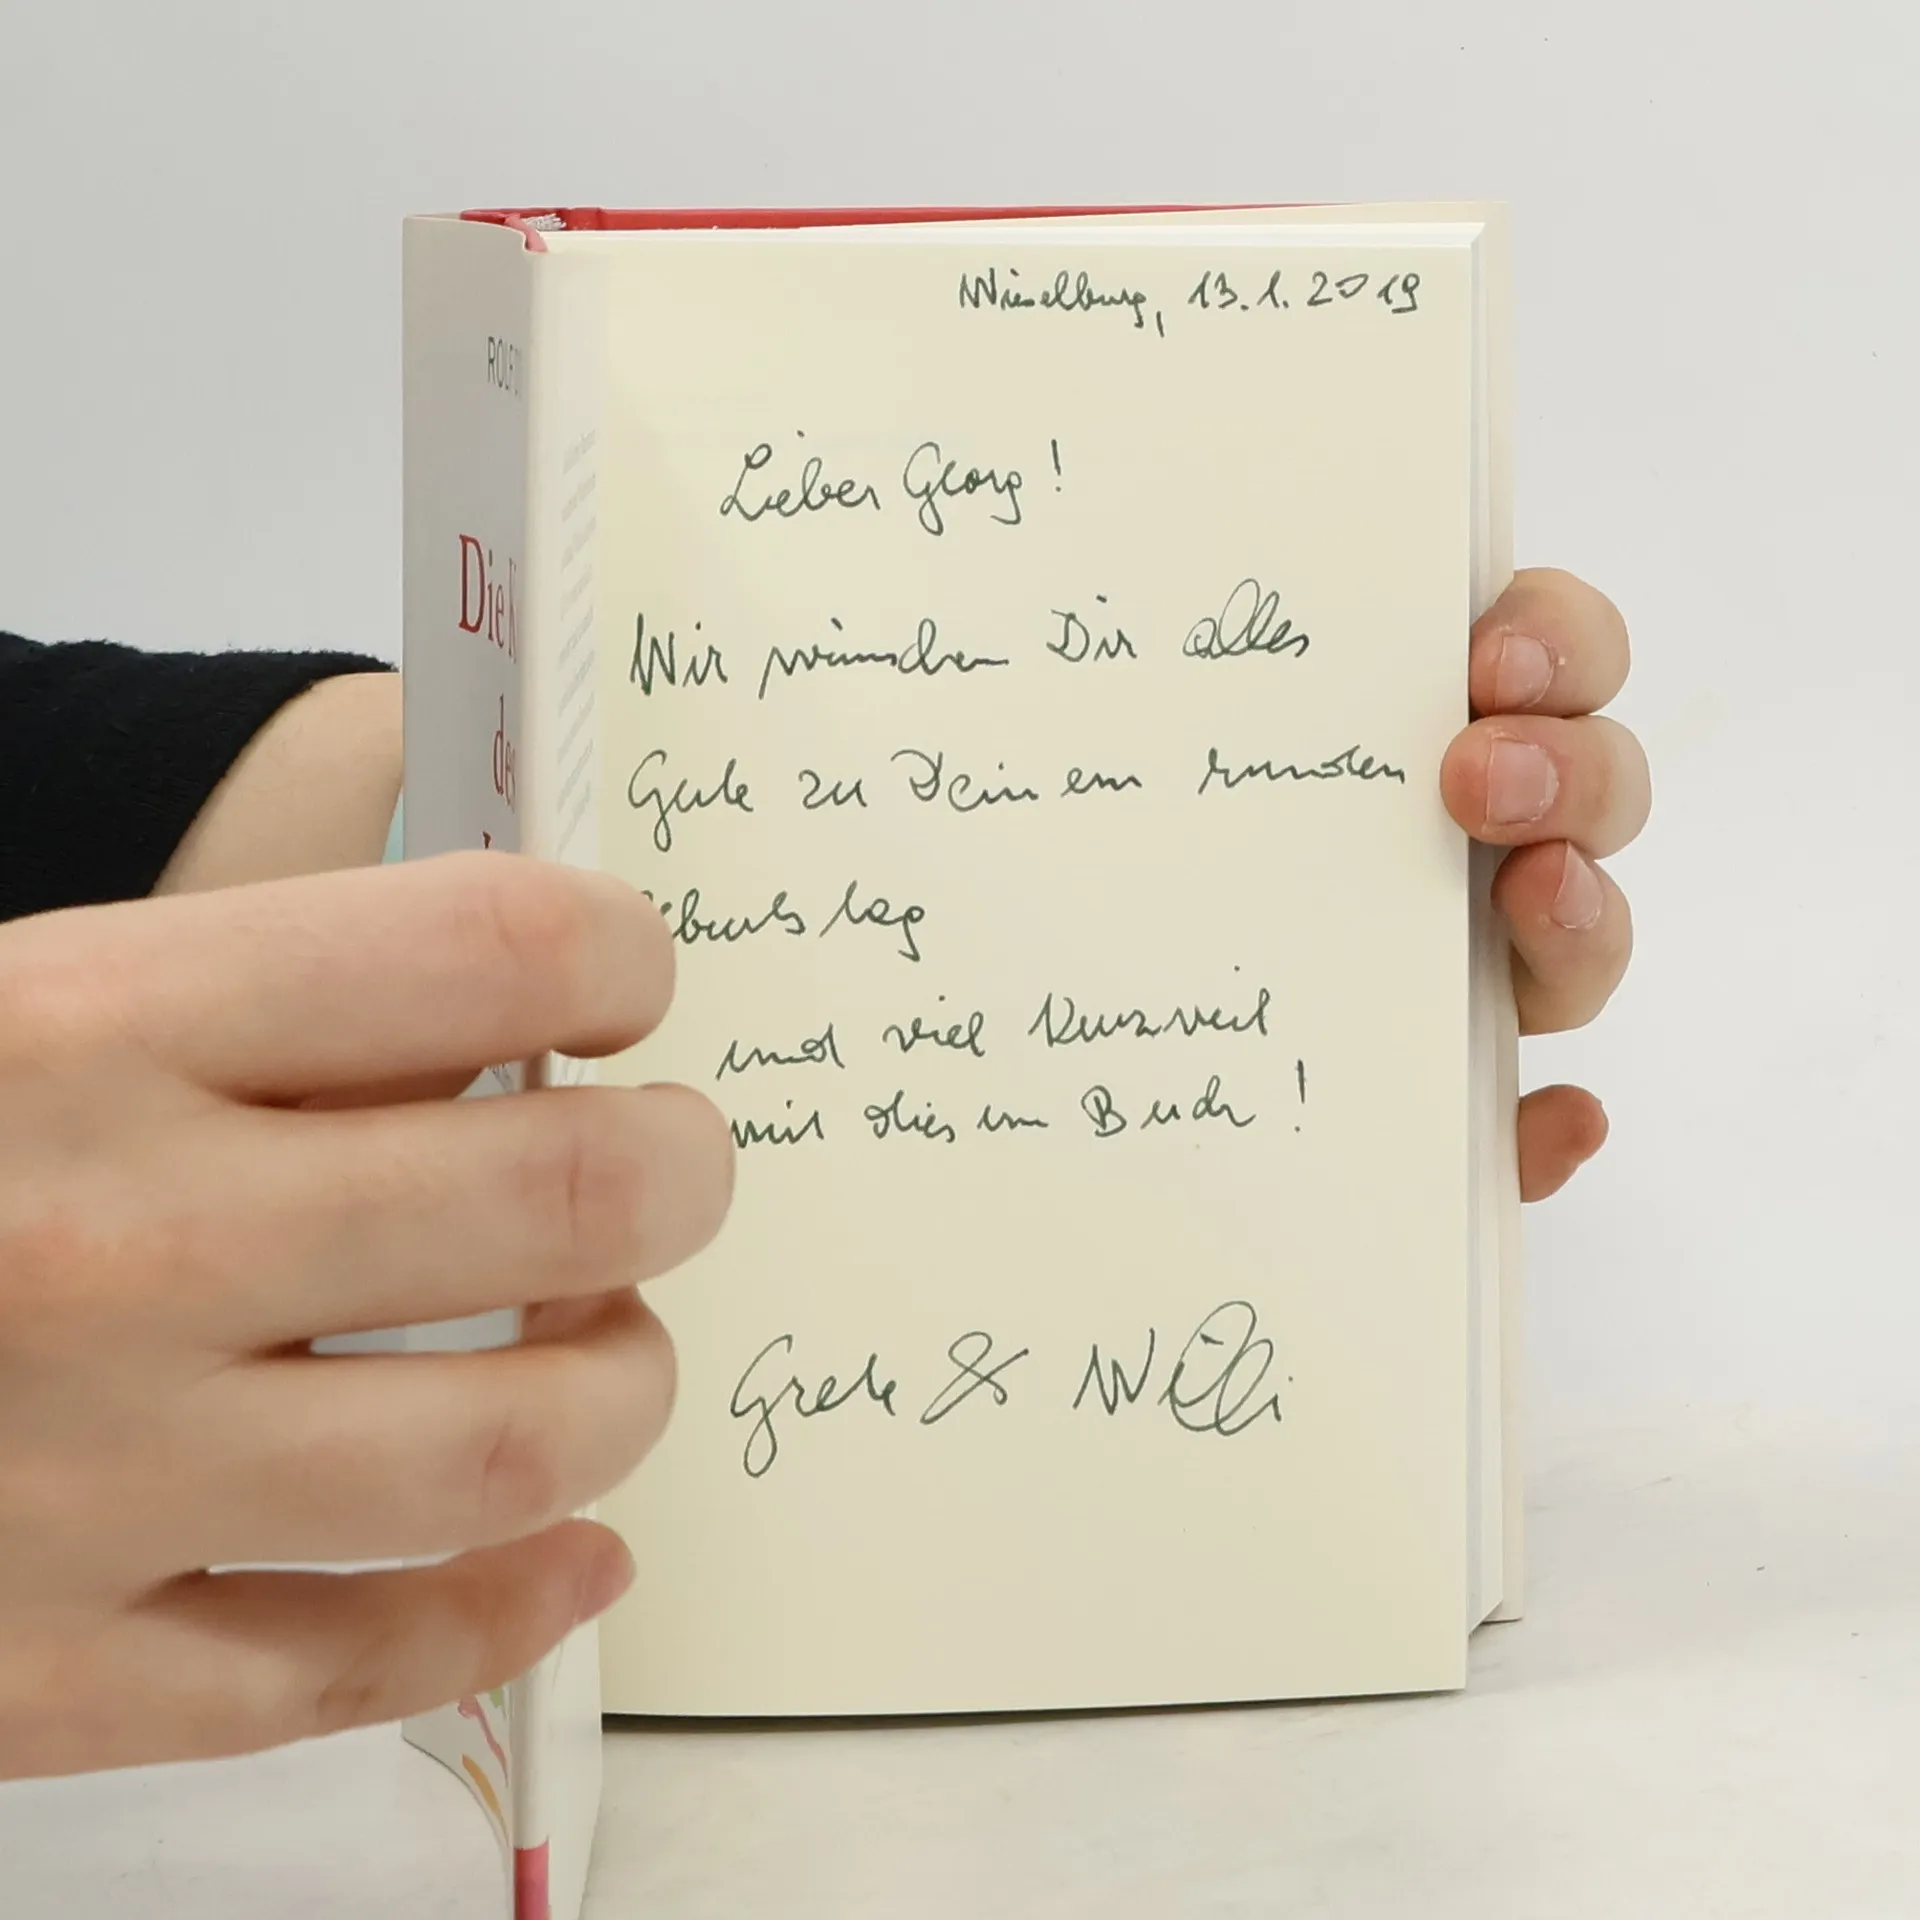 Wieselburg, 13.1.2019
Lieber Georg!
Wir wünschen Dir alles
Gute zu Deinem runden
Geburtstag
und viel Kurzweil
mit diesem Buch!
Grete & Willi
ROLF
Die
des